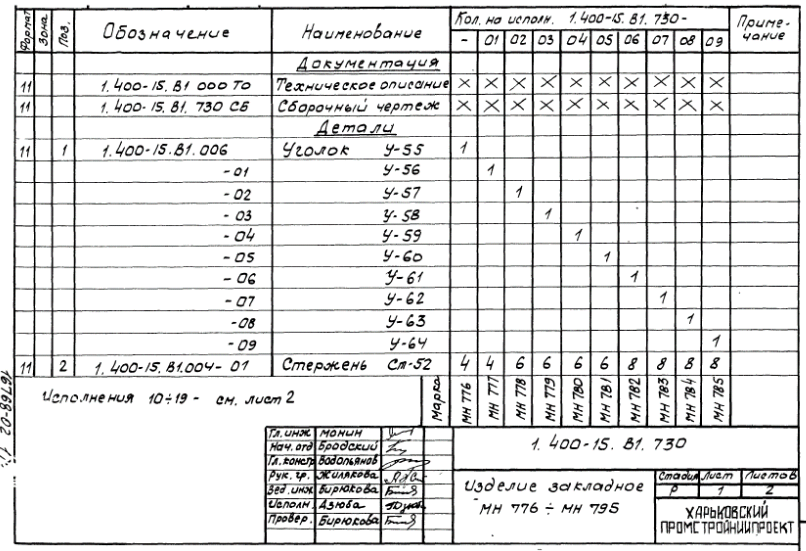 Формат Зона Поз. Обозначение Наименование Кол. на исполн. 1.400-15.В1.730- Приме-чание
- 01 02 03 04 05 06 07 08 09
Документация
11 1.400-15.В1 000 ТО Техническое описание × × × × × × × × × ×
11 1.400-15.В1. 730 СБ Сборочный чертеж × × × × × × × × × ×
Детали
11 1 1.400-15.В1.006 Уголок У-55 1
-01 У-56 1
-02 У-57 1
-03 У-58 1
-04 У-59 1
-05 У-60 1
-06 У-61 1
-07 У-62 1
-08 У-63 1
-09 У-64 1
11 2 1.400-15.В1.004-01 Стержень Ст-52 4 4 6 6 6 6 8 8 8 8
Исполнения 10÷19 - см. лист 2
Марка МН 776 МН 777 МН 778 МН 779 МН 780 МН 781 МН 782 МН 783 МН 784 МН 785
Гл. инж Монин
Нач. отд Бродский
Гл. констр Водопьянов
Рук. гр. Жилякова
Вед. инж Бирюкова
Исполн. Азюба
Провер. Бирюкова
1.400-15.В1.730
Изделие закладное
МН 776 ÷ МН 795
Стадия Лист Листов
Р 1 2
ХАРЬКОВСКИЙ
ПРОМСТРОЙНИИПРОЕКТ